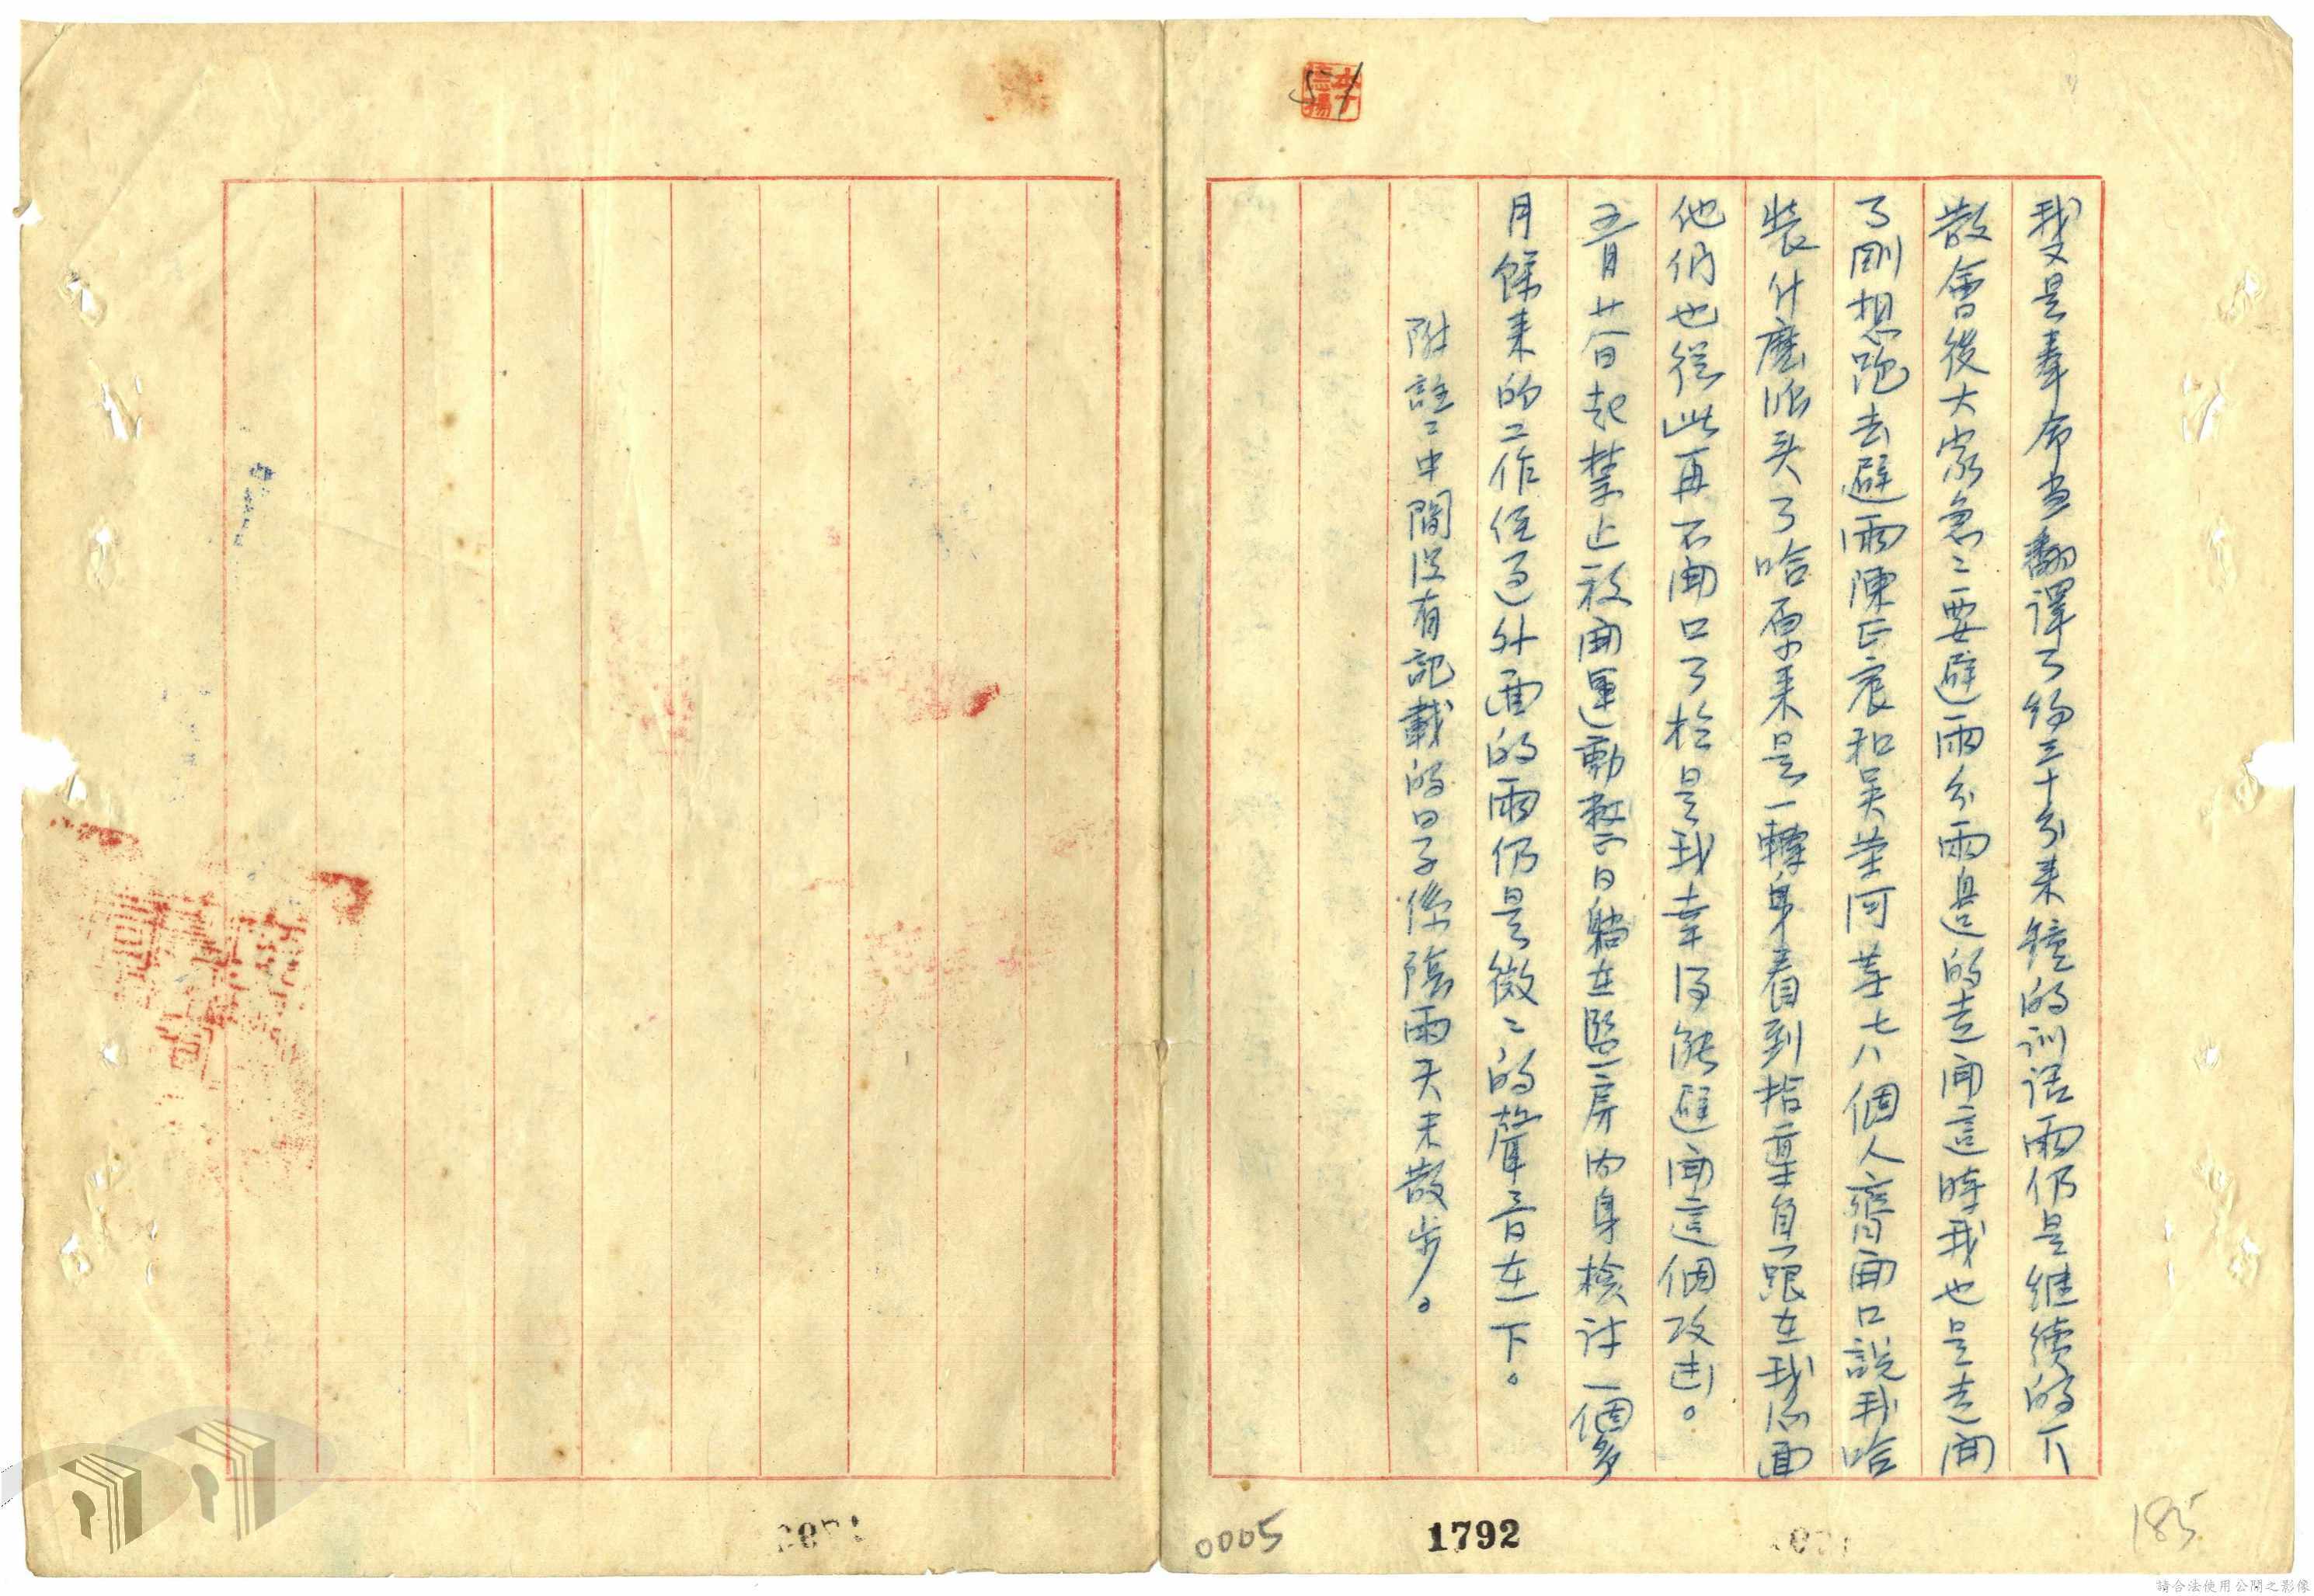 我又是奉命当翻譯了約三十分来鐘的训话雨仍是継續的下
散會後大家急〻要避雨分兩邊的走開這時我也是走開
了剛想跑去避雨陳正宸和吴荣阿等七八個人齊開口說我哈
裝什麽派头了哈原来是一轉身看到指導員跟在我后面
他们也從此再不開口了於是我幸得能避開這個攻击。
五月廿合日起禁止放開運動整日躺在監房内身検讨一個多
月餘来的工作経过外面的雨仍是微〻的聲音在下。
附註：中間没有記載的日子係陰雨天未散步。
51
0005
1792
185
請合法使用公開之影像